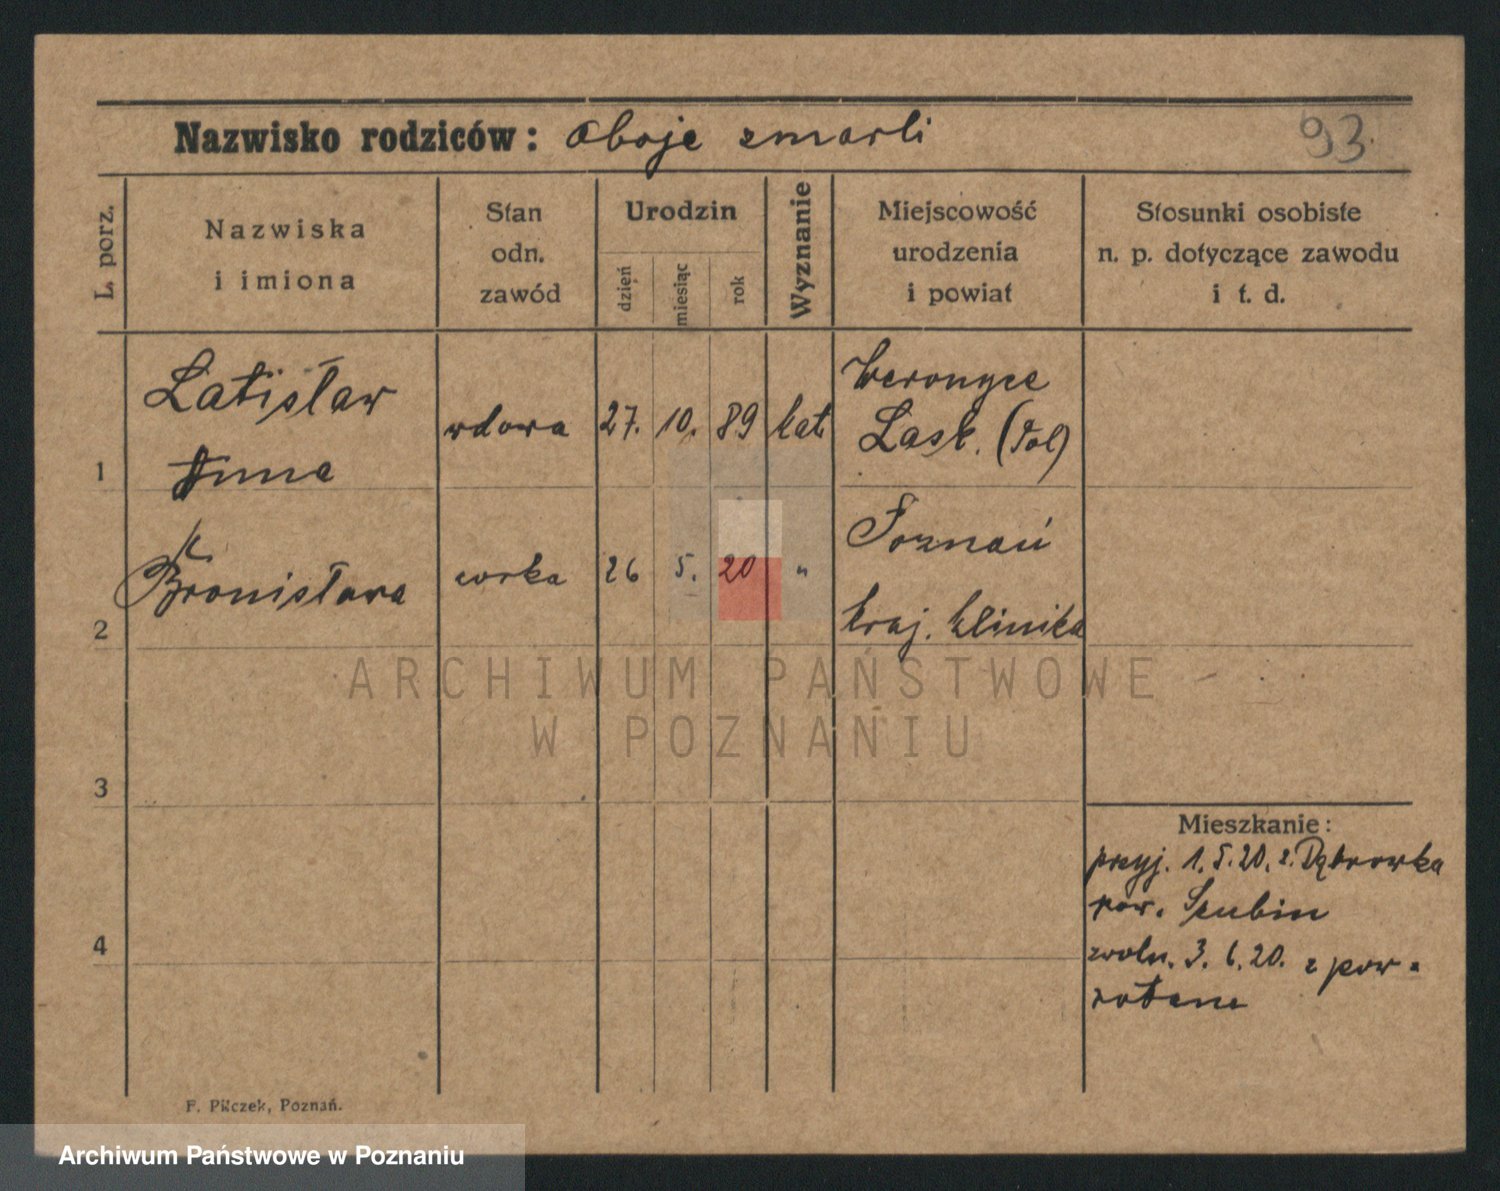 Nazwisko rodziców: Oboje zmarli
93.
L. porz.
Nazwiska
i imiona
Stan
odn.
zawód
Urodzin
dzień
miesiąc
rok
Wyznanie
Miejscowość
urodzenia
i powiat
Stosunki osobiste
n. p. dotyczące zawodu
i t. d.
1
Latisław
Anna
wdowa
27. 10. 89
kat.
Weronyce
Lask. (Pol)
2
Bronisława
corka
26 5. 20 "
Poznań
kraj. klinika
ARCHIWUM PAŃSTWOWE
W POZNANIU
3
4
Mieszkanie:
przyj. 1.5.20. z. Dąbrowka
pow. Szubin
zwoln. 3. 6. 20. z pow-
rotem
F. Pilczek, Poznań.
Archiwum Państwowe w Poznaniu